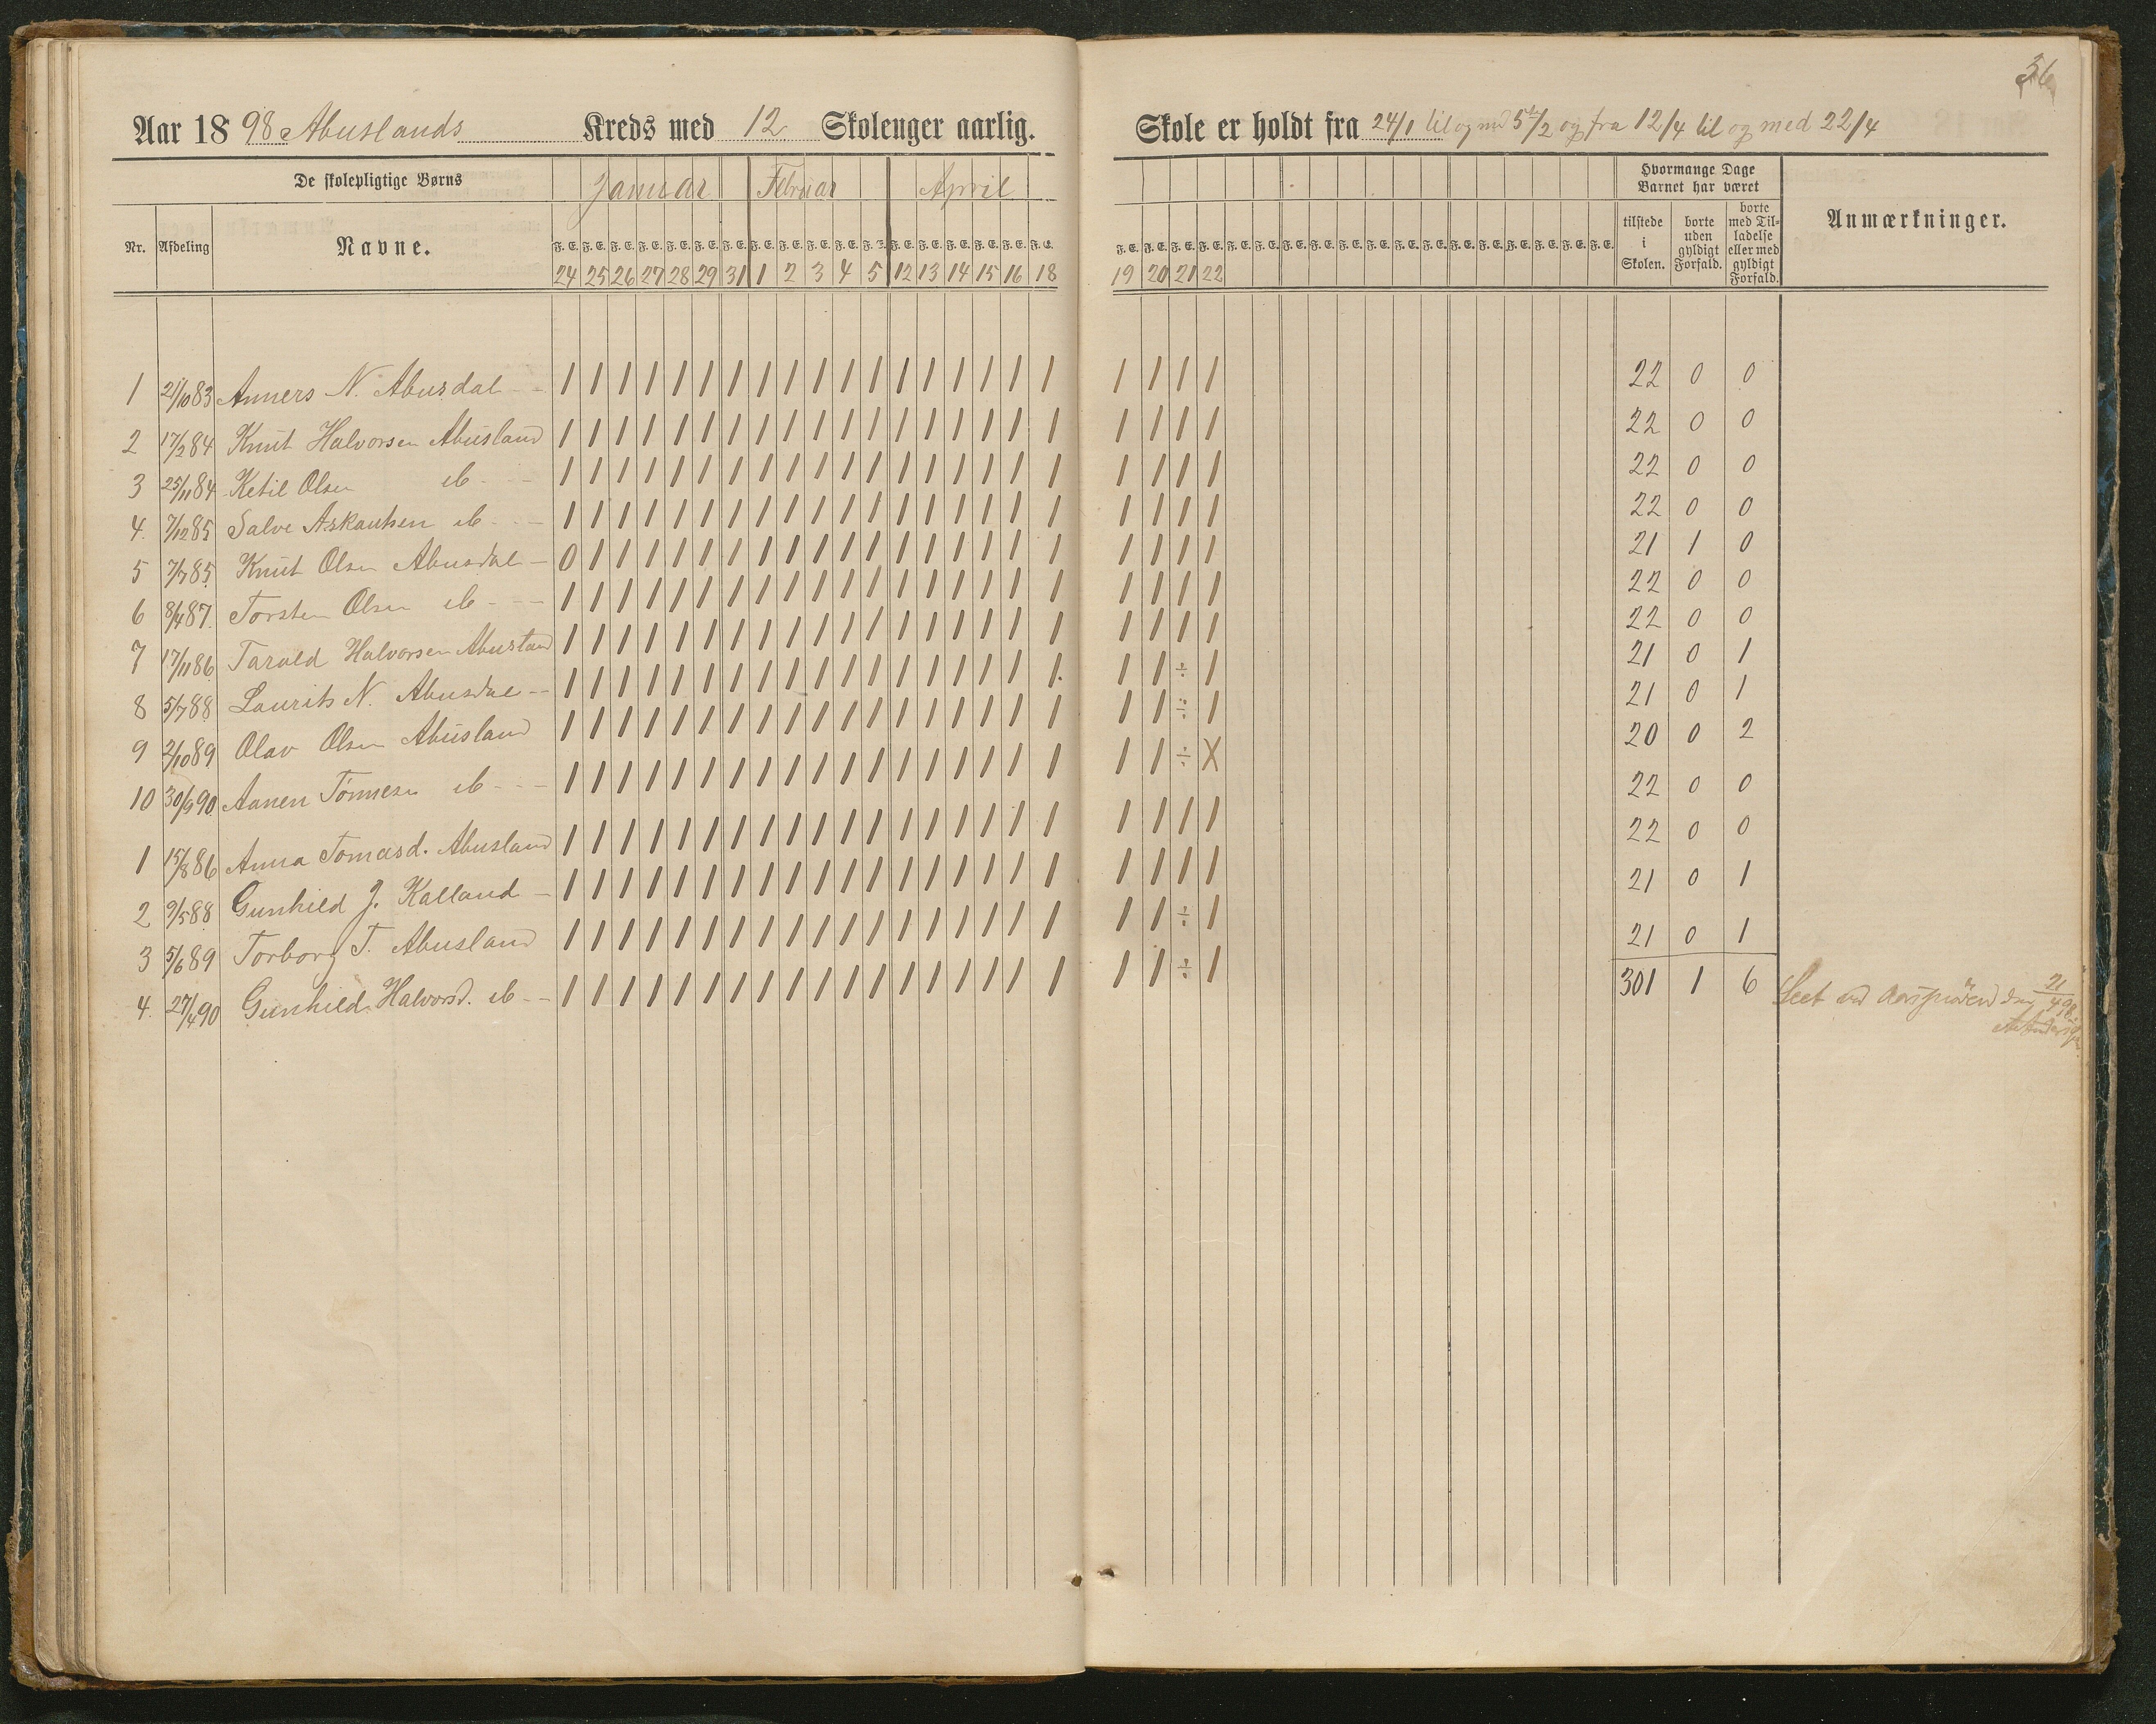 36
Aar 1898 Abuslands Kreds med 12 Skoleuger aarlig.
Skole er holdt fra 24/1 til og med 5te/2 og fra 12/4 til og med 22/4
De skolepligtige Børns Januar Februar April
Hvormange Dage Barnet har været
Nr. Afdeling Navne.
F. E. F. E. F. E. F. E. F. E. F. E. F. E. F. E. F. E. F. E. F. E. F. E. F. E. F. E. F. E. F. E. F. E. F. E.
F. E. F. E. F. E. F. E. F. E. F. E. F. E. F. E. F. E. F. E. F. E. F. E. F. E. F. E. F. E. F. E. F. E. F. E.
tilstede i Skolen. borte uden gyldigt Forfald. borte med Tilladelse eller med gyldigt Forfald. Anmærkninger.
24 25 26 27 28 29 31 1 2 3 4 5 12 13 14 15 16 18 19 20 21 22
1 21/10 83 Anners N. Abusdal - - 1 1 1 1 1 1 1 1 1 1 1 1 1 1 1 1 1 1 1 1 1 1 22 0 0
2 17/2 84 Knut Halvorsen Abusland 1 1 1 1 1 1 1 1 1 1 1 1 1 1 1 1 1 1 1 1 1 1 22 0 0
3 25/11 84 Ketil Olsen ib - - - 1 1 1 1 1 1 1 1 1 1 1 1 1 1 1 1 1 1 1 1 1 1 22 0 0
4. 7/12 85 Salve Askautsen ib - - - 1 1 1 1 1 1 1 1 1 1 1 1 1 1 1 1 1 1 1 1 1 1 22 0 0
5 7/7 85. Knut Olsen Abusdal - 0 1 1 1 1 1 1 1 1 1 1 1 1 1 1 1 1 1 1 1 1 1 21 1 0
6 8/4 87. Torsten Olsen ib - - - 1 1 1 1 1 1 1 1 1 1 1 1 1 1 1 1 1 1 1 1 1 1 22 0 0
7 17/11 86 Tarald Halvorsen Abusland 1 1 1 1 1 1 1 1 1 1 1 1 1 1 1 1 1 1 1 1 1 1 22 0 0
8 5/7 88 Laurits N. Abusdal - - 1 1 1 1 1 1 1 1 1 1 1 1 1 1 1 1 1 1. 1 1 ÷ 1 21 0 1
9 2/10 89 Olav Olsen Abusland 1 1 1 1 1 1 1 1 1 1 1 1 1 1 1 1 1 1 1 1 ÷ 1 21 0 1
10 30/9 90. Aanen Tønnesen ib - - - 1 1 1 1 1 1 1 1 1 1 1 1 1 1 1 1 1 1 1 1 ÷ X 20 0 2
1 15/8 86 Anna Tomasd. Abusland 1 1 1 1 1 1 1 1 1 1 1 1 1 1 1 1 1 1 1 1 1 1 22 0 0
2 9/5 88 Gunhild J. Kalland - 1 1 1 1 1 1 1 1 1 1 1 1 1 1 1 1 1 1 1 1 1 1 22 0 0
3 5/6 89 Torborg T. Abusland 1 1 1 1 1 1 1 1 1 1 1 1 1 1 1 1 1 1 1 1 ÷ 1 21 0 1
4. 27/4 90 Gunhild Halvorsd. ib - - 1 1 1 1 1 1 1 1 1 1 1 1 1 1 1 1 1 1 1 1 ÷ 1 21 0 1
301 1 6 Seet ved Aarsprøven den 21/4 98.